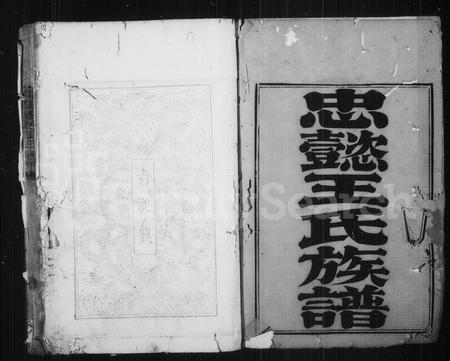 忠
懿
王
氏
族
譜
FamilySearch